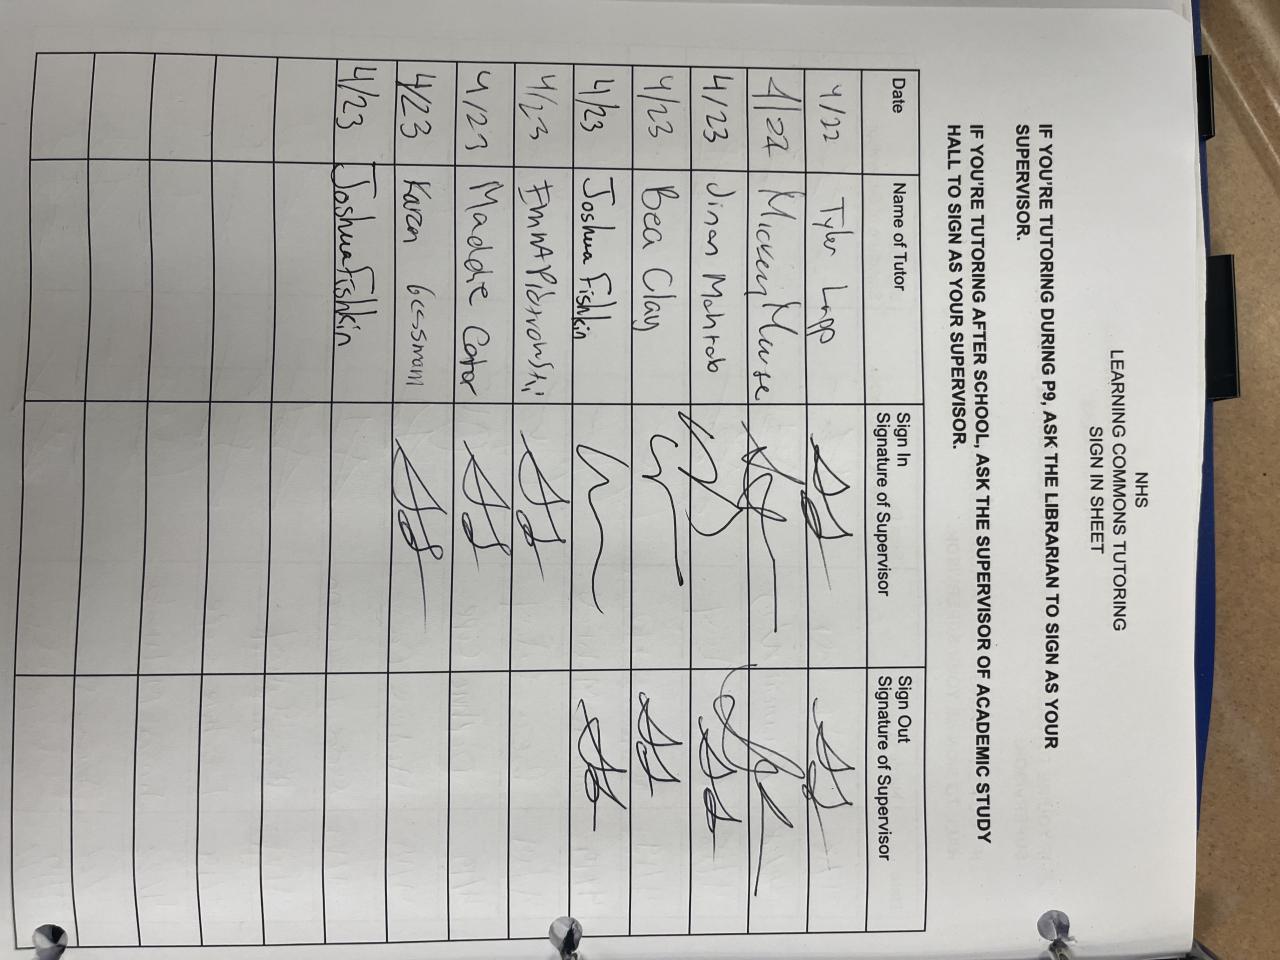 NHS
LEARNING COMMONS TUTORING
SIGN IN SHEET
IF YOU'RE TUTORING DURING P9, ASK THE LIBRARIAN TO SIGN AS YOUR
SUPERVISOR.
IF YOU'RE TUTORING AFTER SCHOOL, ASK THE SUPERVISOR OF ACADEMIC STUDY
HALL TO SIGN AS YOUR SUPERVISOR.
Date Name of Tutor Sign In Signature of Supervisor Sign Out Signature of Supervisor
4/22 Tyler Lapp
Mickey
4/23 Jinan Mahtab
4/23 Bea Clay
4/23 Joshua Fishkin
4/23
4/23 Maddie Cator
4/23 Karen Gessman
4/23 Joshua Fishkin